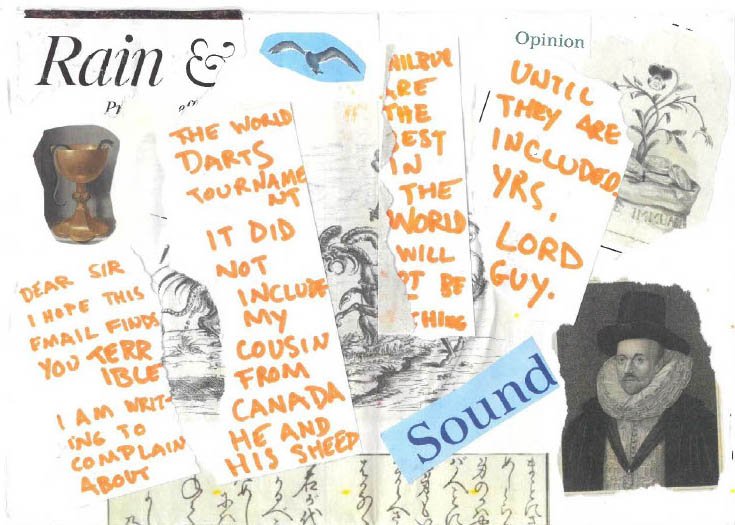 Rain &
Opinion
DEAR SIR
I HOPE THIS
EMAIL FINDS
YOU TERR
IBLE
I AM WRIT-
ING TO
COMPLAIN
ABOUT
THE WORLD
DARTS
TOURNAME
NT
IT DID
NOT
INCLUDE
MY
COUSIN
FROM
CANADA
HE AND
HIS SHEEP
WILBUR
ARE
THE
BEST
IN
THE
WORLD
WILL
OT BE
THING
UNTIL
THEY ARE
INCLUDED.
YRS,
LORD
GUY.
Sound